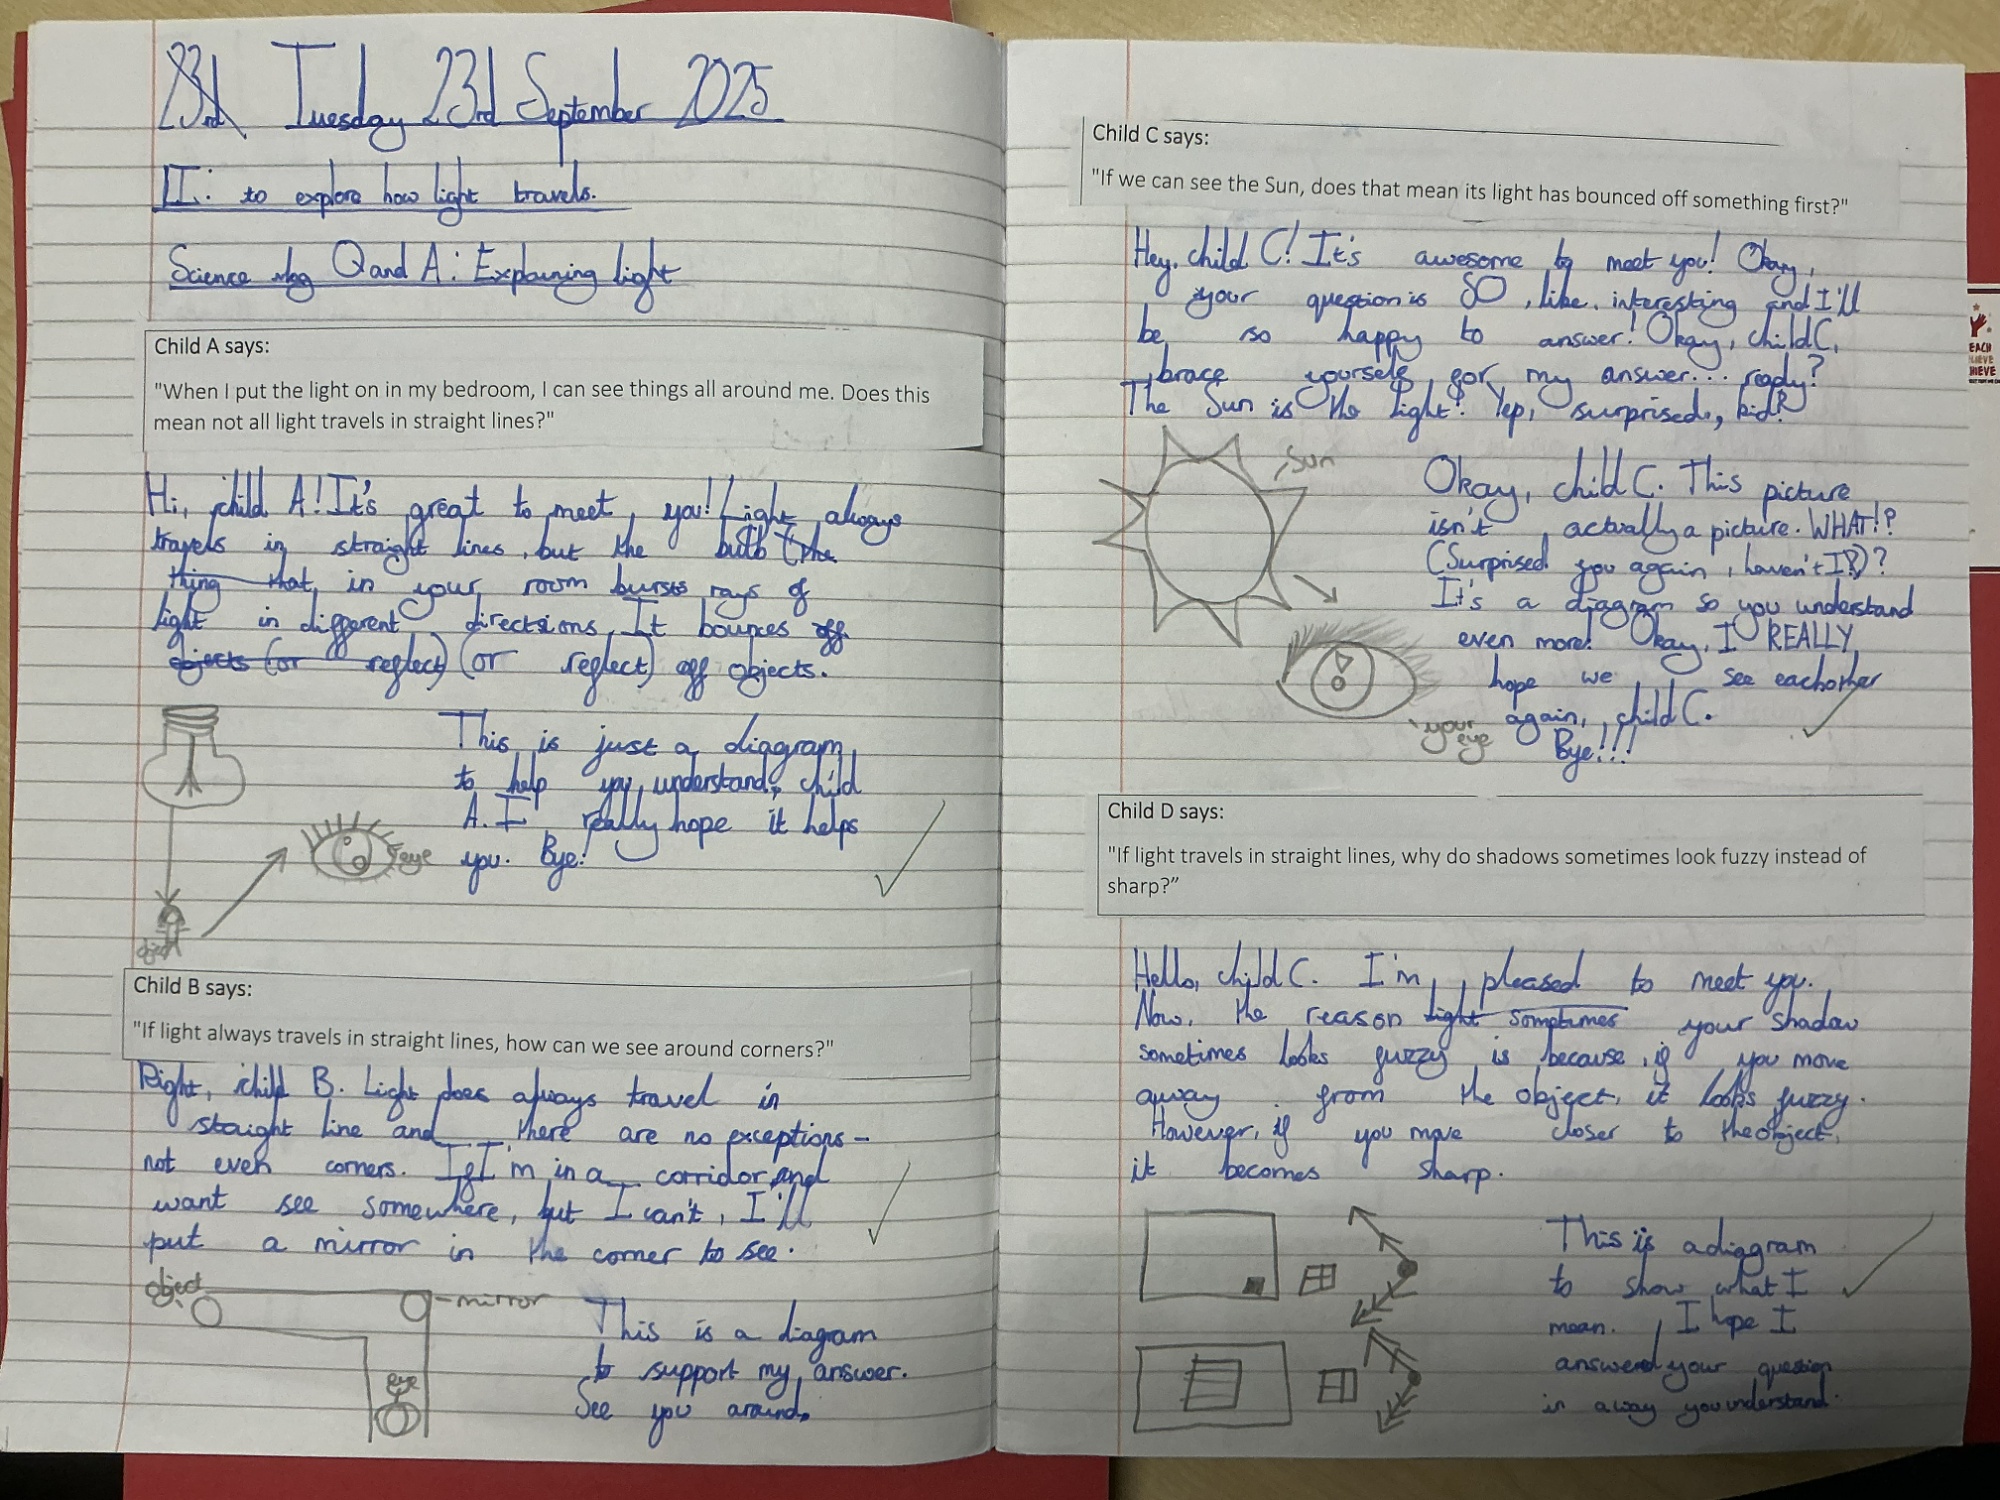 23rd Tuesday 23rd September 2025
LI: to explore how light travels.
Science vlog Q and A: Explaining light
Child A says:
"When I put the light on in my bedroom, I can see things all around me. Does this
mean not all light travels in straight lines?"
Hi, child A! It's great to meet you! Light always
travels in straight lines, but the bulb (the
thing that in your room bursts rays of
light in different directions. It bounces off
objects (or reflect) (or reflect) off objects.
This is just a diagram
to help you understand, child
A. I really hope it helps
you. Bye!
eye
object
Child B says:
"If light always travels in straight lines, how can we see around corners?"
Right, child B. Light does always travel in
staight line and there are no exceptions –
not even corners. If I'm in a corridor and
want see somewhere, but I can't, I'll
put a mirror in the corner to see.
object
mirror
eye
This is a diagram
to support my answer.
See you around.
Child C says:
"If we can see the Sun, does that mean its light has bounced off something first?"
Hey, child C! It's awesome to meet you! Okay,
your question is SO, like, interesting and I'll
be so happy to answer! Okay, child C,
brace yourself for my answer... ready?
The Sun is the light! Yep, surprised, kid?
Sun
Okay, child C. This picture
isn't actually a picture. WHAT!?
(Surprised you again, haven't I?)?
It's a diagram so you understand
even more! Okay, I REALLY
hope we see eachother
again, child C.
Bye!!!
your
eye
Child D says:
"If light travels in straight lines, why do shadows sometimes look fuzzy instead of
sharp?"
Hello, child C. I'm pleased to meet you.
Now, the reason light sometimes your shadow
sometimes looks fuzzy is because, if you move
away from the object, it looks fuzzy.
However, if you move closer to the object,
it becomes sharp.
This is a diagram
to show what I
mean. I hope I
answered your question
in a way you understand.
EACH
IEVE
HIEVE